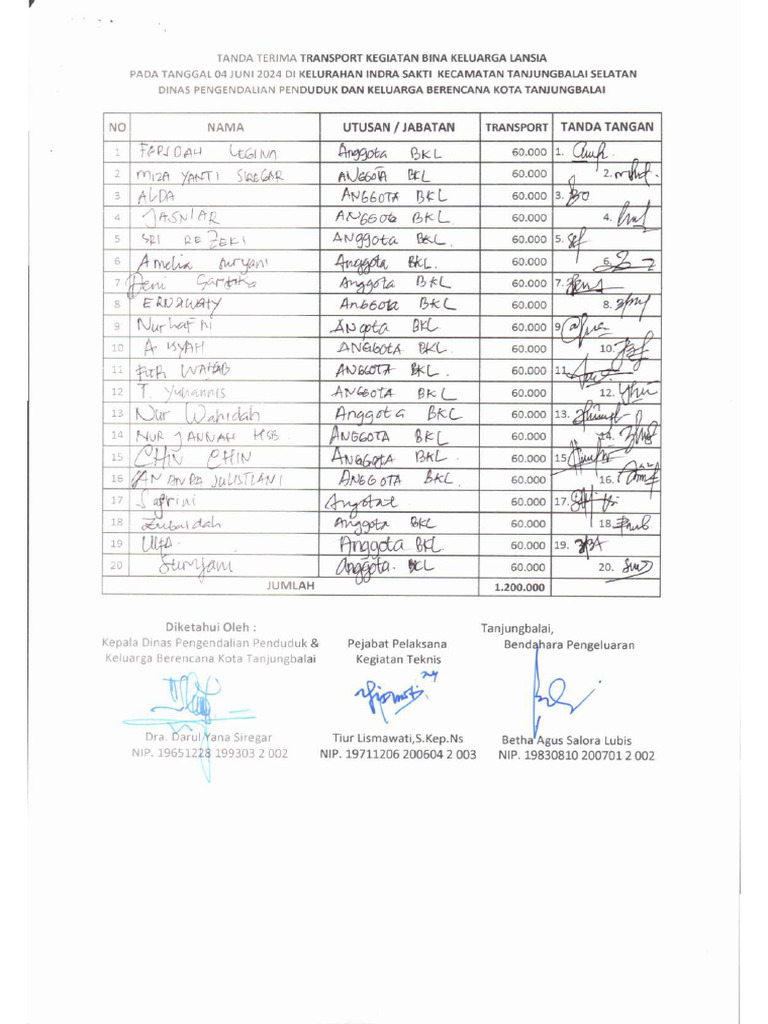 TANDA TERIMA TRANSPORT KEGIATAN BINA KELUARGA LANSIA
PADA TANGGAL 04 JUNI 2024 DI KELURAHAN INDRA SAKTI KECAMATAN TANJUNGBALAI SELATAN
DINAS PENGENDALIAN PENDUDUK DAN KELUARGA BERENCANA KOTA TANJUNGBALAI
NO NAMA UTUSAN / JABATAN TRANSPORT TANDA TANGAN
1 FERIDAH LEGINA Anggota BKL 60.000 1.
2 MIZA YANTI SIREGAR ANGGOTA BKL 60.000 2.
3 ALDA ANGGOTA BKL 60.000 3.
4 JASNIAR ANGGOTA BKL 60.000 4.
5 SRI REZEKI ANGGOTA BKL. 60.000 5.
6 Amelia Suryani Anggota BKL. 60.000 6.
7 Deni Anggota BKL 60.000 7.
8 ERNAWATY ANGGOTA BKL 60.000 8.
9 Nurhafni ANgota BKL 60.000 9
10 A ISYAH ANGGOTA BKL. 60.000 10.
11 WAHAB ANGGOTA BKL 60.000 11.
12 T. Yuhannis ANGGOTA BKL 60.000 12.
13 Nur Wahidah Anggota BKL 60.000 13.
14 NUR JANNAH HSB ANGGOTA BKL 60.000 14.
15 CHIN CHIN ANGGOTA BKL. 60.000 15
16 ANANDA JULISTIANI ANGGOTA BKL 60.000 16.
17 Safrini 60.000 17.
18 Zubaidah Anggota BKL 60.000 18.
19 Ulfa Anggota BKL 60.000 19.
20 Suryani Anggota. BKL 60.000 20.
JUMLAH 1.200.000
Tanjungbalai,
Diketahui Oleh :
Kepala Dinas Pengendalian Penduduk & Pejabat Pelaksana Bendahara Pengeluaran
Keluarga Berencana Kota Tanjungbalai Kegiatan Teknis
Dra. Darul Yana Siregar Tiur Lismawati,S.Kep.Ns Betha Agus Salora Lubis
NIP. 19651228 199303 2 002 NIP. 19711206 200604 2 003 NIP. 19830810 200701 2 002